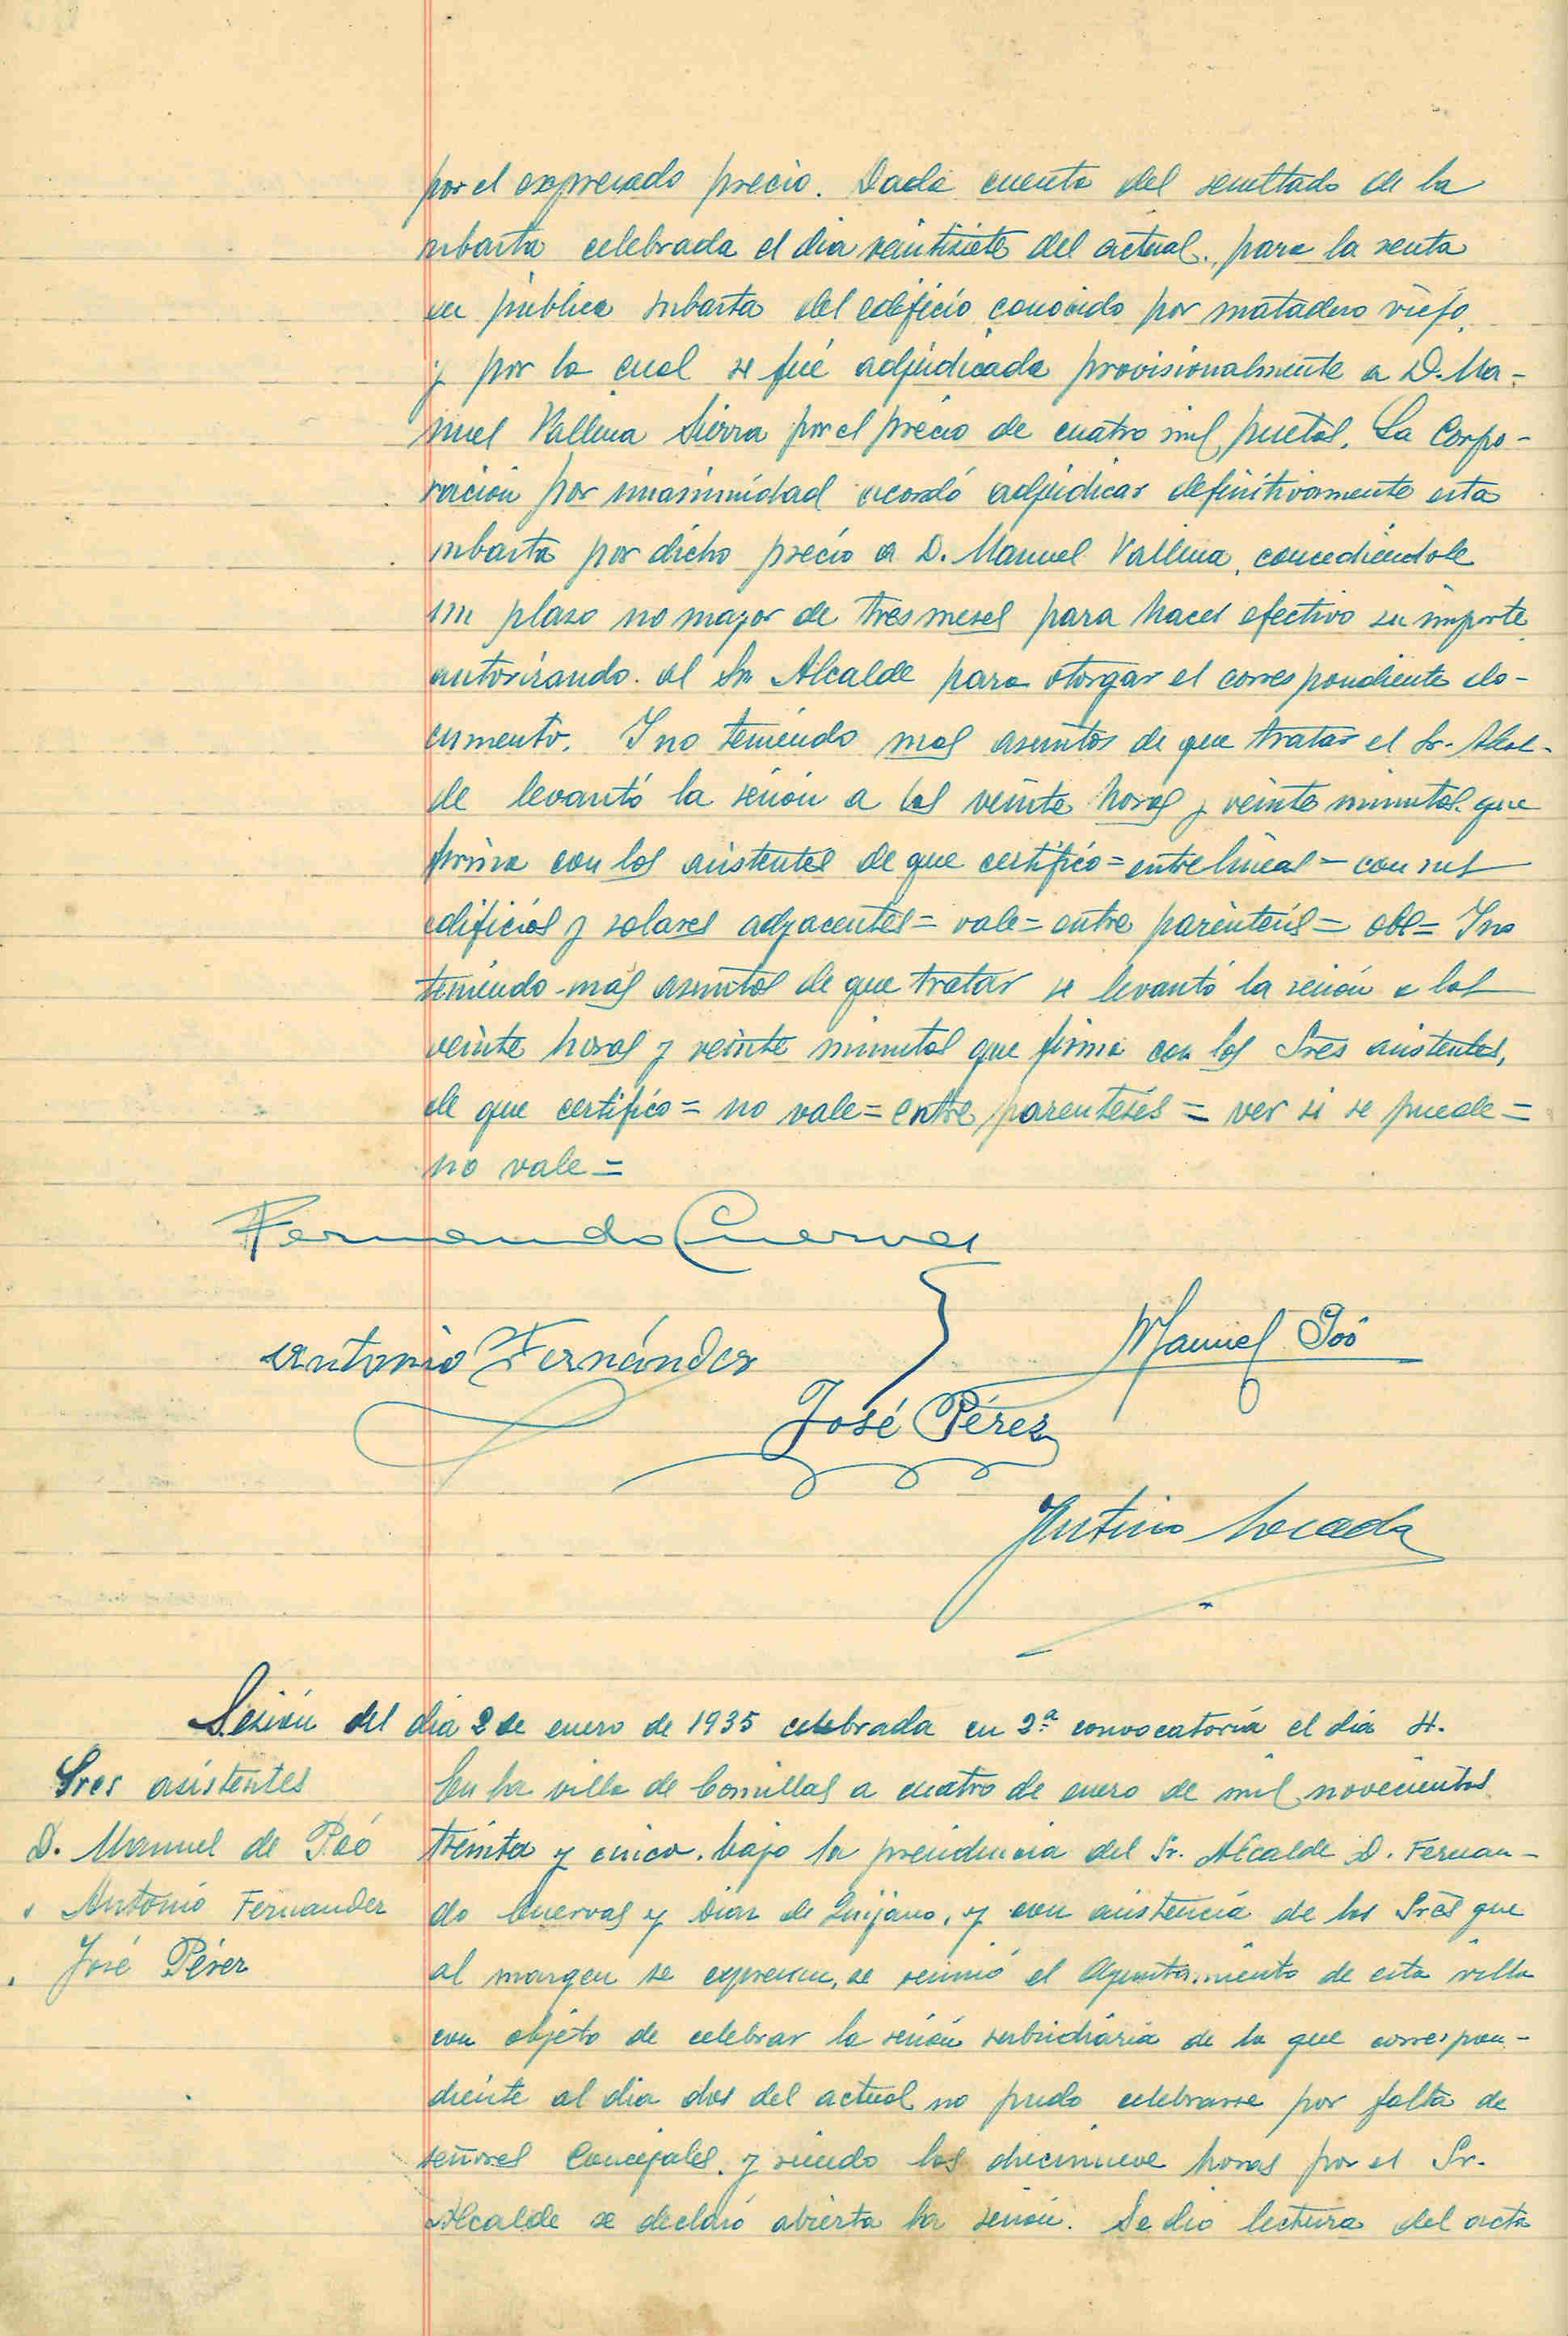 por el expresado precio. Dada cuenta del resultado de la
subasta celebrada el dia veintisiete del actual, para la venta
en publica subasta del edificio conocido por matadero viejo,
y por la cual se fué adjudicada provisionalmente a D. Ma-
nuel Vallina Sierra por el precio de cuatro mil pesetas. La Corpo-
ración por unanimidad acordó adjudicar definitivamente esta
subasta por dicho precio a D. Manuel Vallina, concediéndole
un plazo no mayor de tres meses para hacer efectivo su importe,
autorizando al Sr. Alcalde para otorgar el correspondiente do-
cumento. Y no teniendo mas asuntos de que tratar el Sr. Alcal-
de levantó la sesión a las veinte horas y veinte minutos que
firma con los asistentes de que certifico = entrelineas = con sus
edificios y solares adyacentes = vale = entre paréntesis = = Y no
teniendo más asuntos de que tratar se levantó la sesión a las
veinte horas y veinte minutos que firma con los Sres asistentes,
de que certifico = no vale = entre parentesis = ver si se puede =
no vale =
Fernando Cuervas
Antonio Fernández
Manuel Póo
José Pérez
Sesión del dia 2 de enero de 1935 celebrada en 2ª convocatoria el dia 4.
Sres asistentes
D. Manuel de Poó
" Antonio Fernandez
" José Pérez
En la villa de Comillas a cuatro de enero de mil novecientos
treinta y cinco, bajo la presidencia del Sr. Alcalde D. Fernan-
do Cuervas y Diaz de Quijano, y con asistencia de los Sres que
al margen se expresan, se reunió el Ayuntamiento de esta villa
con objeto de celebrar la sesión subsidiaria de la que correspon-
diente al dia dos del actual no pudo celebrarse por falta de
señores Concejales, y siendo las diecinueve horas por el Sr.
Alcalde se declaró abierta la sesión. Se dio lectura del acta